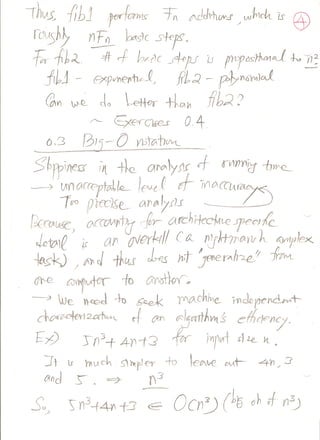 Thus, fib1 performs Fn additions, which is
④
roughly nFn basic steps.
For fib2. # of basic steps is propositional to n²
fib1 - exponential, fib2 - polynomial
Can we do better than fib2?
~ Exercises 0.4
0.3 Big-O notation
Sloppiness in the analysis of running time
→ unacceptable level of inaccuracy
Too precise analysis
Because, accounting for architecture specific
detail is an overkill (a nightmarish complex
task), and thus does not "generalize" from
one computer to another.
→ We need to seek machine independent
characterization of an algorithm's efficiency.
Ex) 5n³+4n+3 for input size n.
It is much simpler to leave out 4n, 3
and 5. ⇒ n³
So, 5n³+4n+3 ∈ O(n³) (big oh of n³)